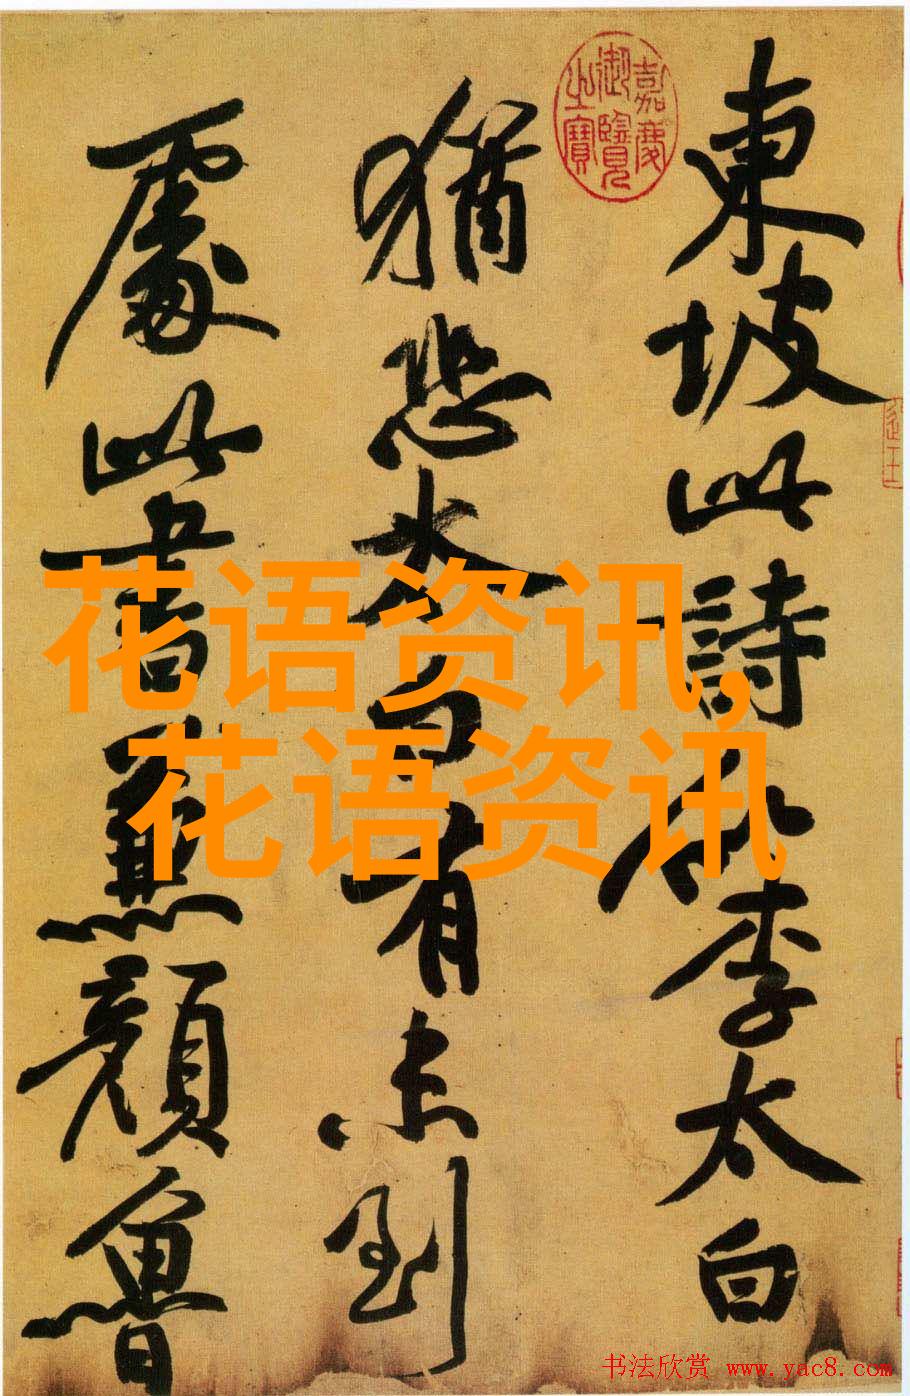 東坡此詩似李太白
猶恐太白有未到
處此書兼顏魯
嘉慶
御覽
之寶
花语资讯,
花语资讯
书法欣赏 www.yac8.com